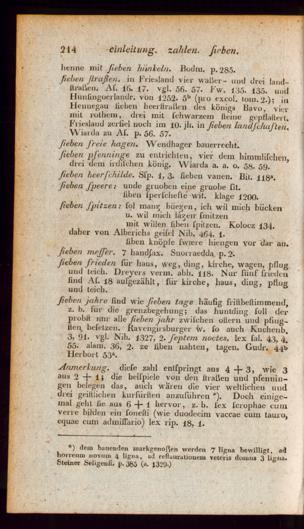 214 einleitung. zahlen. sieben.
henne mit sieben hünkeln. Bodm. p. 285.
sieben straßen. in Friesland vier waßer- und drei land-
straßen. As. 16. 17. vgl. 56. 57. Fw. 135. 135. und
Hunsingoerlandr. von 1252. 5ᵇ (pro excol. tom. 2.); in
Hennegau sieben heerstraßen des königs Bavo, vier
mit rothem, drei mit schwarzem steine gepflastert.
Friesland zerfiel noch im 10. jh. in sieben landschaften.
Wiarda zu As. p. 56. 57.
sieben freie hagen. Wendhager bauerrecht.
sieben pfenninge zu entrichten, vier dem himmlischen,
drei dem irdischen könig. Wiarda a. a. o. 58. 59.
sieben heerschilde. Ssp. 1, 3. sieben vanen. Bit. 118ᵃ.
sieben speere: unde gruoben eine gruobe sit.
siben sperschefte wit. klage 1200.
sieben spitzen: sol mang büegen, ich wil mich bücken
u. wil mich lâgen smitzen
mit willen siben spitzen. Kolocz 134.
daher von Alberichs geisel Nib. 464, 1.
siben knöpfe swære hiengen vor dar an.
sieben messer. 7 handsax. Snorraedda, p. 2.
sieben frieden für haus, weg, ding, kirche, wagen, pflug
und teich. Dreyers verm. abh. 118. Nur fünf frieden
sind As. 18 aufgezählt, für kirche, haus, ding, pflug
und teich.
sieben jahre sind wie sieben tage häufig fristbestimmend,
z. b. für die grenzbegehung; das hunding soll der
probst nur alle sieben jahr zwischen ostern und pfing-
sten besetzen. Ravengirsburger w. so auch Kuchenb.
3, 91. vgl. Nib. 1327, 2. septem noctes. lex sal. 43, 4.
55. alam. 36, 2. ze siben nahten, tagen. Gudr. 44ᵇ
Herbort 53ᵃ.
Anmerkung. diese zahl entspringt aus 4 + 3, wie 3
aus 2 + 1; die beispiele von den straßen und pfennin-
gen belegen das, auch wären die vier weltlichen und
drei geistlichen kurfürsten anzuführen *). Doch einige-
mal geht sie aus 6 + 1 hervor, z. b. sex scrophae cum
verre bilden ein sonesti (wie duodecim vaccae cum tauro,
equae cum admissario) lex rip. 18, 1.
*) dem bauenden markgenoßen werden 7 ligna bewilligt, ad
horreum novum 4 ligna, ad restaurationem veteris domus 3 ligna.
Steiner Seligenst. p. 385 (a. 1329.)